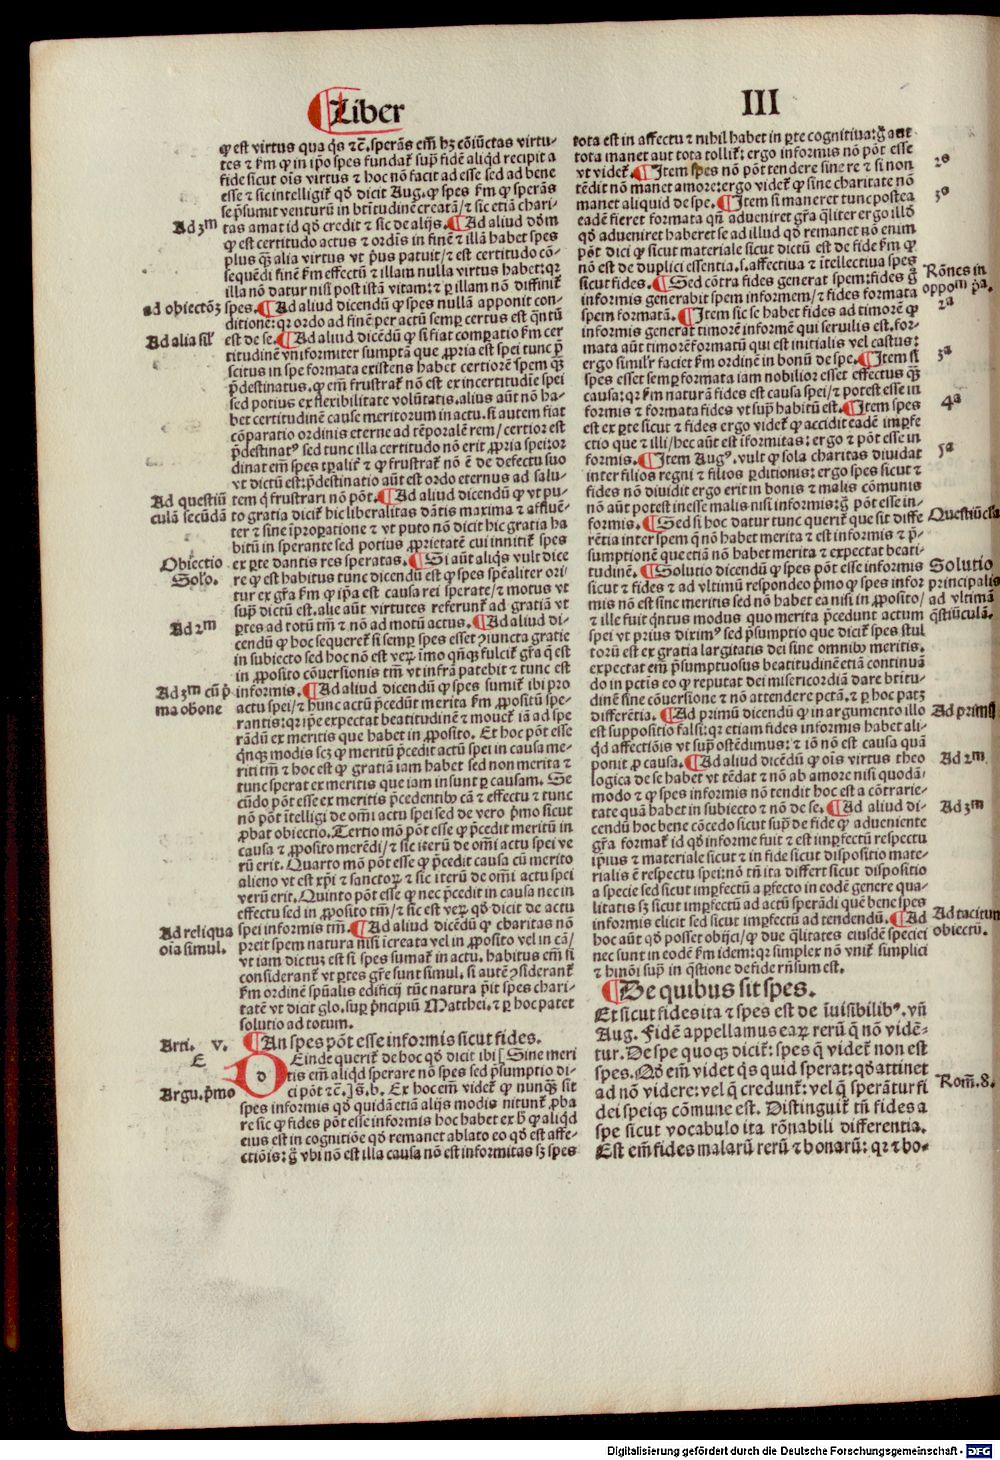 Liber
III
ꝙ est virtus qua q̃s ⁊c̃. sperãs em̃ hꝫ cõiũctas virtu-
tes ⁊ k̃m ꝙ in ip̃o spes fundat᷑ sup̃ fidẽ aliq̃d recipit a
fide sicut oĩs virtus ⁊ hoc nõ facit ad esse sed ad bene
esse ⁊ sic intelligit᷑ qđ dicit Aug. ꝙ spes k̃m ꝙ sperãs
se p̃sumit venturũ in bt̃itudinẽ creatã/⁊ sic etiã chari-
Ad 3ᵐ
tas amat id qđ credit ⁊ sic de alijs. ¶ Ad aliud dõm
ꝙ est certitudo actus ⁊ ordĩs in finẽ ⁊ illã habet spes
plus q̃ꝫ alia virtus vt p̃us patuit/⁊ est certitudo cõ-
sequẽdi finẽ k̃m effectũ ⁊ illam nulla virtus habet: qꝛ
illa nõ datur nisi post istã vitam: ⁊ ꝑ illam nõ diffinit᷑
ad obiectoꝫ
spes. ¶ Ad aliud dicendũ ꝙ spes nullã apponit con-
ditionẽ: qꝛ ordo ad finẽ per actũ semꝑ certus est q̃ntũ
Ad alia sil᷑
est de se. ¶ Ad aliud dicẽdũ ꝙ si fiat comꝑatio k̃m cer
titudinẽ vniformiter sumptã que ꝓpria est spei tunc p̃
scitus in spe formata existens habet certiorẽ spem q̃ꝫ
p̃destinatus. ꝙ em̃ frustrat᷑ nõ est ex incertitudie spei
sed potius ex flexibilitate volũtatis. alius aũt nõ ha-
bet certitudinẽ cause meritorum in actu. si autem fiat
cõparatio ordinis eterne ad tẽporalẽ rem/certior est
p̃destinatꝰ sed tunc illa certitudo nõ erit ꝓpria spei: or
dinat em̃ spes tꝑalit᷑ ⁊ ꝙ frustrat᷑ nõ ẽ de defectu suo
vt dictũ est: p̃destinatio aũt est ordo eternus ad salu-
Ad questiũ
culã secũdã
tem q̃ frustrari nõ põt. ¶ Ad aliud dicendũ ꝙ vt pu-
to gratia dicit᷑ hic liberalitas dãtis maxima ⁊ affluẽ-
ter ⁊ sine ĩproꝑatione ⁊ vt puto nõ dicit hic gratia ha
bitũ in sperante sed potius ꝓprietatẽ cui innitit᷑ spes
Obiectio
ex ꝑte dantis res speratas. ¶ Si aũt aliq̃s vult dice
Solo.
re ꝙ est habitus tunc dicendũ est ꝙ spes spẽaliter ori
tur ex gr̃a k̃m ꝙ ip̃a est causa rei sperate/⁊ motus vt
sup̃ dictũ est. alie aũt virtutes referunt᷑ ad gratiã vt
Ad 2ᵐ
ꝑtes ad totũ tm̃ ⁊ nõ ad motũ actus. ¶ Ad aliud di-
cendũ ꝙ hoc sequeret᷑ si semꝑ spes esset ꝯiuncta gratie
in subiecto sed hoc nõ est veꝝ imo qñqꝫ fulcit᷑ gr̃a q̃ est
in ꝓposito cõuersionis tm̃ vt infra patebit ⁊ tunc est
Ad 3ᵐ cũ p̃
ma obone
informis. ¶ Ad aliud dicendũ ꝙ spes sumit᷑ ibi pro
actu spei/⁊ hunc actũ p̃cedũt merita k̃m ꝓpositũ spe-
rantis: qꝛ ip̃e expectat beatitudinẽ ⁊ mouet᷑ iã ad spe
rãdũ ex meritis que habet in ꝓposito. Et hoc põt esse
q̃nqꝫ modis scꝫ ꝙ meritũ p̃cedit actũ spei in causa me-
riti tm̃ ⁊ hoc est ꝙ gratiã iam habet sed non merita ⁊
tunc sperat ex meritis que iam insunt ꝑ causam. Se
cũdo põt esse ex meritis p̃cedentibꝰ cã ⁊ effectu ⁊ tunc
nõ põt ĩtelligi de om̃i actu spei sed de vero p̃mo sicut
ꝓbat obiectio. Tertio mõ põt esse ꝙ p̃cedit meritũ in
causa ⁊ ꝓposito merẽdi/⁊ sic iterũ de om̃i actu spei ve
rũ erit. Quarto mõ põt esse ꝙ p̃cedit causa cũ merito
alieno vt est xp̃i ⁊ sanctoꝝ ⁊ sic iterũ de om̃i actu spei
verũ erit. Quinto põt esse ꝙ nec p̃cedit in causa nec in
effectu sed in ꝓposito tm̃/⁊ sic est veꝝ qđ dicit de actu
Ad reliqua
oĩa simul.
spei informis tm̃. ¶ Ad aliud dicẽdũ ꝙ charitas nõ
p̃ceit spem natura nisi ĩcreata vel in ꝓposito vel in cã/
vt iam dictuꝫ est si spes sumat᷑ in actu. habitus em̃ si
considerant᷑ vt ꝑtes gr̃e sunt simul. si autẽ ꝯsiderant᷑
k̃m ordinẽ sp̃ualis edificij tũc natura p̃it spes chari-
tatẽ vt dicit glo. suꝑ p̃ncipiũ Matthei. ⁊ ꝑ hoc patet
solutio ad totum.
Arti. v.
¶ An spes põt esse informis sicut fides.
E
DEinde querit᷑ de hoc qđ dicit ibi [Sine meri
tis em̃ aliq̃d sperare nõ spes sed p̃sumptio di-
Argu. p̃mo
ci põt ⁊c̃.] s̃. b. Ex hoc em̃ videt᷑ ꝙ nunqꝫ sit
spes informis qđ quidã etiã alijs modis nitunt᷑ ꝓba
re sic ꝙ fides põt esse informis hoc habet ex h̃ ꝙ aliq̃d
eius est in cognitiõe qđ remanet ablato eo qđ est affe-
ctiõis: g̃ vbi nõ est illa causa nõ est informitas sꝫ spes
tota est in affectu ⁊ nihil habet in ꝑte cognitiua: g̃ aut
tota manet aut tota tollit᷑: ergo informis nõ põt esse
2ᵃ
vt videt᷑. ¶ Item spes nõ põt tendere sine re ⁊ si non
tẽdit nõ manet amore: ergo videt᷑ ꝙ sine charitate nõ
3ᵃ
manet aliquid de spe. ¶ Item si maneret tunc postea
eadẽ fieret formata qñ adueniret gr̃a q̃liter ergo illđ
qđ adueniret haberet se ad illud qđ remanet nõ enim
põt dici ꝙ sicut materiale sicut dictũ est de fide k̃m ꝙ
nõ est de duplici essentia .s. affectiua ⁊ ĩtellectiua spes
Rõnes in
oppoᵐ p̃ᵃ.
sicut fides. ¶ Sed cõtra fides generat spem: fides g̃
informis generabit spem informem/⁊ fides formata
2ᵃ
spem formatã. ¶ Item sic se habet fides ad timorẽ ꝙ
informis generat timorẽ informẽ qui seruilis est. for-
mata aũt timorẽ formatũ qui est initialis vel castus:
3ᵃ
ergo similr̃ faciet k̃m ordinẽ in bonũ de spe. ¶ Item si
spes esset semꝑ formata iam nobilior esset effectus q̃ꝫ
causa: qꝛ k̃m naturã fides est causa spei/⁊ potest esse in
4ᵃ
formis ⁊ formata fides vt sup̃ habitũ est. ¶ Item spes
est ex ꝑte sicut ⁊ fides ergo videt᷑ ꝙ accidit eadẽ imꝑfe
ctio que ⁊ illi/hec aũt est ĩformitas: ergo ⁊ põt esse in
5ᵃ
formis. ¶ Item Augꝰ. vult ꝙ sola charitas diuidat
inter filios regni ⁊ filios ꝑditionis: ergo spes sicut ⁊
fides nõ diuidit ergo erit in bonis ⁊ malis cõmunis
nõ aũt potest inesse malis nisi informis: g̃ põt esse in-
Questiũcla
formis. ¶ Sed si hoc datur tunc querit᷑ que sit diffe
rẽtia inter spem q̃ nõ habet merita ⁊ est informis ⁊ p̃-
sumptionẽ que etiã nõ habet merita ⁊ expectat beati-
Solutio
principalis
ad vltimã
q̃stiũculã.
tudinẽ. ¶ Solutio dicendũ ꝙ spes põt esse informis
sicut ⁊ fides ⁊ ad vltimũ respondeo p̃mo ꝙ spes infor
mis nõ est sine meritis sed nõ habet ea nisi in ꝓposito/
⁊ ille fuit q̃ntus modus quo merita p̃cedunt actum
spei vt prius diximꝰ sed p̃sumptio que dicit᷑ spes stul
torũ est ex gratia largitatis dei sine omnibꝰ meritis.
expectat em̃ p̃sumptuosus beatitudinẽ etiã continuã
do in pctĩs eo ꝙ reputat dei misericordiã dare bt̃itu-
dinẽ sine cõuersione ⁊ nõ attendere pctã. ⁊ ꝑ hoc patꝫ
Ad primũ
differẽtia. ¶ Ad primũ dicendũ ꝙ in argumento illo
est suppositio falsi: qꝛ etiam fides informis habet ali-
q̃d affectiõis vt sup̃ ostẽdimus: ⁊ iõ nõ est causa quã
Ad 2ᵐ
ponit ꝓ causa. ¶ Ad aliud dicẽdũ ꝙ oĩs virtus theo
logica de se habet vt tẽdat ⁊ nõ ab amore nisi quodã-
modo ⁊ ꝙ spes informis nõ tendit hoc est a cõtrarie-
Ad 3ᵐ
tate quã habet in subiecto ⁊ nõ de se. ¶ Ad aliud di-
cendũ hoc bene cõcedo sicut sup̃ de fide ꝙ adueniente
gr̃a format᷑ id qđ informe fuit ⁊ est imꝑfectũ respectu
ip̃ius ⁊ materiale sicut ⁊ in fide sicut dispositio mate-
rialis ẽ respectu spei: nõ tñ ita differt sicut dispositio
a specie sed sicut imꝑfectũ a ꝑfecto in eodẽ genere qua-
litatis sꝫ sicut imꝑfectũ ad actũ sperãdi quẽ bene spes
Ad tacitum
obiectũ.
informis elicit sed sicut imꝑfectũ ad tendendũ. ¶ Ad
hoc aũt qđ posset obijci/ꝙ due q̃litates eiusdẽ speciei
nec sunt in eodẽ k̃m idem: qꝛ simplex nõ vnit᷑ simplici
⁊ hmõi sup̃ in q̃stione de fide rñsum est.
¶ De quibus sit spes.
Et sicut fides ita ⁊ spes est de ĩuisibilibꝰ. vñ
Aug. Fidẽ appellamus eaꝝ rerũ q̃ nõ vidẽ-
tur. De spe quoqꝫ dicit᷑: spes q̃ videt᷑ non est
Rom̃. 8.
spes. Qđ em̃ videt q̃s quid sperat: qđ attinet
ad nõ videre: vel q̃ credunt᷑: vel q̃ sperãtur fi
dei speiqꝫ cõmune est. Distinguit᷑ tñ fides a
spe sicut vocabulo ita rõnabili differentia.
Est em̃ fides malarũ rerũ ⁊ bonarũ: qꝛ ⁊ bo-
Digitalisierung gefördert durch die Deutsche Forschungsgemeinschaft - DFG